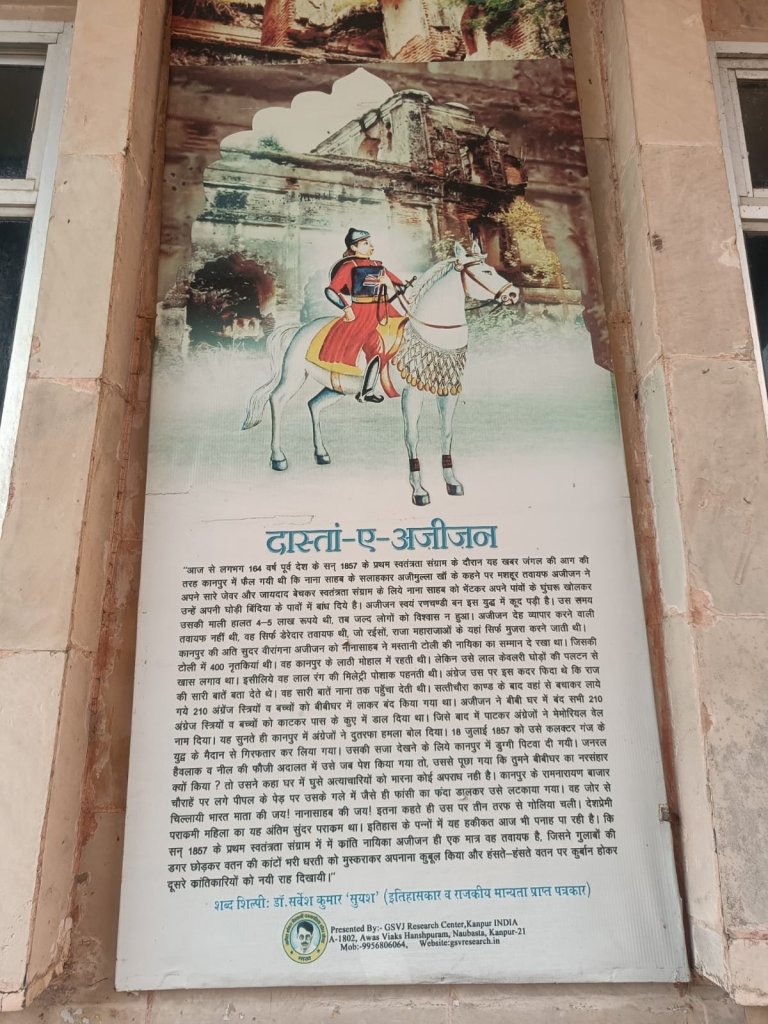 दास्तां-ए-अजीजन
"आज से लगभग 164 वर्ष पूर्व देश के सन् 1857 के प्रथम स्वतंत्रता संग्राम के दौरान यह खबर जंगल की आग की
तरह कानपुर में फैल गयी थी कि नाना साहब के सलाहकार अजीमुल्ला खाँ के कहने पर मशहूर तवायफ अजीजन ने
अपने सारे जेवर और जायदाद बेचकर स्वतंत्रता संग्राम के लिये नाना साहब को भेंटकर अपने पांवों के घुंघरू खोलकर
उन्हें अपनी घोड़ी बिंदिया के पावों में बांध दिये है। अजीजन स्वयं रणचण्डी बन इस युद्ध में कूद पड़ी है। उस समय
उसकी माली हालत 4-5 लाख रूपये थी, तब जल्द लोगों को विश्वास न हुआ। अजीजन देह व्यापार करने वाली
तवायफ नहीं थी, वह सिर्फ डेरेदार तवायफ थी, जो रईसों, राजा महाराजाओं के यहां सिर्फ मुजरा करने जाती थी।
कानपुर की अति सुदर वीरांगना अजीजन को नानासाहब ने मस्तानी टोली की नायिका का सम्मान दे रखा था। जिसकी
टोली में 400 नृतकियां थी। वह कानपुर के लाठी मोहाल में रहती थी। लेकिन उसे लाल केवलरी घोड़ों की पलटन से
खास लगाव था। इसीलिये वह लाल रंग की मिलेट्री पोशाक पहनती थी। अंग्रेज उस पर इस कदर फिदा थे कि राज
की सारी बातें बता देते थे। वह सारी बातें नाना तक पहुँचा देती थी। सत्तीचौरा काण्ड के बाद वहां से बचाकर लाये
गये 210 अंग्रेंज स्त्रियों व बच्चों को बीबीघर में लाकर बंद किया गया था। अजीजन ने बीबी घर में बंद सभी 210
अंग्रेज स्त्रियों व बच्चों को काटकर पास के कुए में डाल दिया था। जिसे बाद में पाटकर अंग्रेजों ने मेमोरियल वेल
नाम दिया। यह सुनते ही कानपुर में अंग्रेजों ने दुतरफा हमला बोल दिया। 18 जुलाई 1857 को उसे कलक्टर गंज के
युद्ध के मैदान से गिरफतार कर लिया गया। उसकी सजा देखने के लिये कानपुर में डुग्गी पिटवा दी गयी। जनरल
हैवलाक व नील की फौजी अदालत में उसे जब पेश किया गया तो, उससे पूछा गया कि तुमने बीबीघर का नरसंहार
क्यों किया ? तो उसने कहा घर में घुसे अत्याचारियों को मारना कोई अपराध नही है। कानपुर के रामनारायण बाजार
चौराहें पर लगे पीपल के पेड़ पर उसके गले में जैसे ही फांसी का फंदा डालकर उसे लटकाया गया। वह जोर से
चिल्लायी भारत माता की जय! नानासाहब की जय! इतना कहते ही उस पर तीन तरफ से गोलिया चली। देशप्रेमी
पराकमी महिला का यह अंतिम सुंदर पराकम था। इतिहास के पन्नों में यह हकीकत आज भी पनाह पा रही है। कि
सन् 1857 के प्रथम स्वतंत्रता संग्राम में में कांति नायिका अजीजन ही एक मात्र वह तवायफ है, जिसने गुलाबों की
डगर छोड़कर वतन की कांटों भरी धरती को मुस्कराकर अपनाना कुबूल किया और हंसते-हंसते वतन पर कुर्बान होकर
दूसरे कांतिकारियों को नयी राह दिखायी।"
शब्द शिल्पी: डॉ.सर्वेश कुमार 'सुयश' (इतिहासकार व राजकीय मान्यता प्राप्त पत्रकार)
Presented By:- GSVJ Research Center,Kanpur INDIA
A-1802, Awas Viaks Hanshpuram, Naubasta, Kanpur-21
Mob:-9956806064, Website:gsvresearch.in